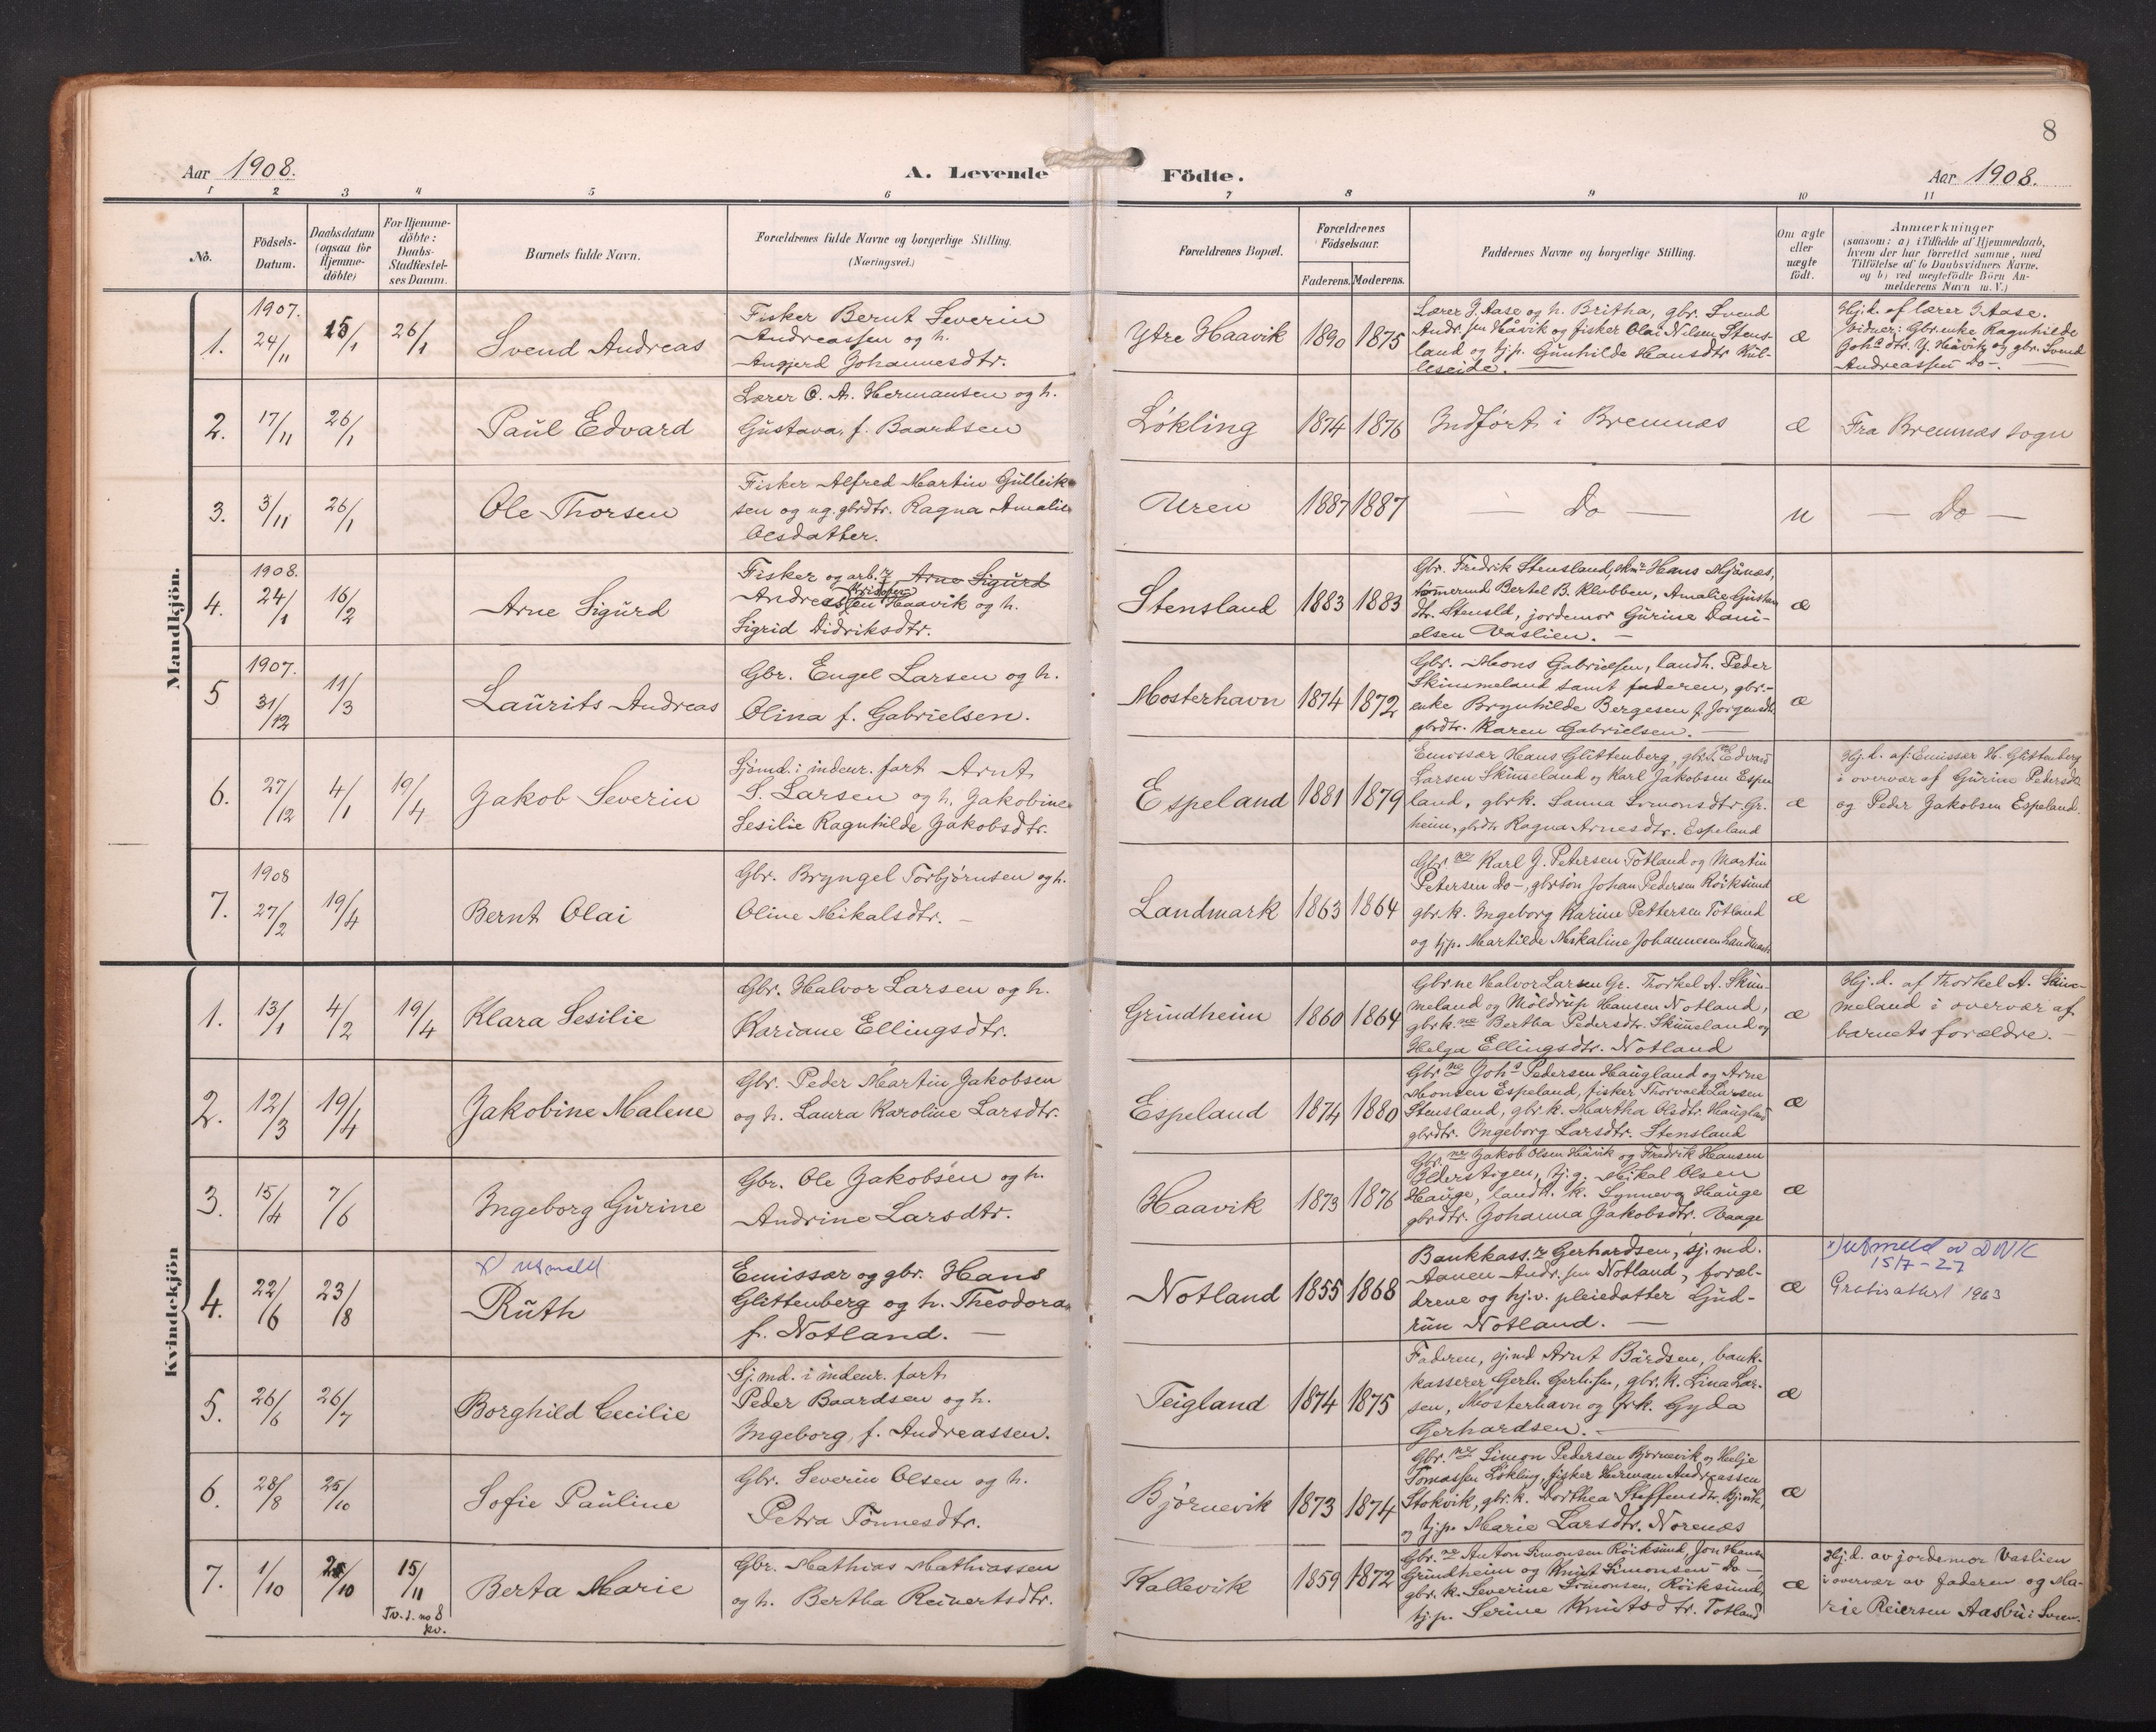 8
Aar 1908.
A. Levende Födte.
Aar 1908.
1 2 3 4 5 6 7 8 9 10 11
No.
Födsels-
Datum.
Daabsdatum
(ogsaa for
Hjemme-
döbte)
For Hjemme-
döbte:
Daabs-
Stadfæstel-
ses Datum.
Barnets fulde Navn.
Forældrenes fulde Navne og borgerlige Stilling.
(Næringsvei.)
Forældrenes Bopæl.
Forældrenes
Födselsaar.
Faderens. Moderens.
Faddernes Navne og borgerlige Stilling.
Om ægte
eller
uægte
födt.
Anmærkninger
(saasom: a) i Tilfælde af Hjemmedaab,
hvem der har forrettet samme, med
Tilföielse af to Daabsvidners Navne,
og b) ved uægtefödte Börn An-
melderens Navn m. V.)
Mandkjön.
1.
1907.
24/11
15/1
26/1
Svend Andreas
Fisker Bernt Severin
Andreassen og h.
Angjerd Johannesdtr.
Ytre Haavik
1890
1875
Lærer J. Aase og h. Britha, gbr. Svend
Andr.sen Håvik og fisker Olai Nilsen Stens-
land og tj.p. Gunhilde Hansdtr Kul-
leseide.
æ
Hj.d. af lærer J. Aase.
Vidner: Gbr.enke Ragnhilde
Joh.dtr. Y. Håvik og gbr. Svend
Andreassen Do
2.
17/11
26/1
Paul Edvard
Lærer O. A. Hermansen og h.
Gustava, f. Baardsen
Løkling
1874
1876
Indført i Bremnes
æ
Fra Bremnes sogn
3.
3/11
26/1
Ole Thorsen
Fisker Alfred Martin Gulleik-
sen og ug. gbrdtr. Ragna Amalie
Olsdatter.
Uren
1887
1887
— Do —
u
— Do —
4.
1908.
24/1
16/2
Arne Sigurd
Fisker og arb.r Arne Sigurd
Andreassen Haavik og h.
Sigrid Didriksdtr.
Stensland
1883
1883
Gbr. Fredrik Stensland, Hans Mjånes,
tømermd Bertel B. Klubben, Amalie Gustav
dtr. Stensld, jordemor Gurine Dani-
elsen Vaslien.
æ
5
1907.
31/12
11/3
Laurits Andreas
Gbr. Engel Larsen og h.
Olina f. Gabrielsen.
Mosterhavn
1874
1872
Gbr. Mons Gabrielsen, landh. Peder
Skimmeland samt faderen, gbr.-
enke Brynhilde Bergesen f. Jørgensdtr.
gbrdtr. Karen Gabrielsen.
æ
6.
27/12
4/1
19/4
Jakob Severin
Sjømd. i indenr. fart Arnt
S. Larsen og h. Jakobine
Sesilie Ragnhilde Jakobsdtr.
Espeland
1881
1879
Emissær Hans Glittenberg, gbr.ne Edvard
Larsen Skimeland og Karl Jakobsen Espe
land, gbrk. Sanna Simonsdtr. Gr.
heim, gbrdtr Ragna Arnesdtr. Espeland
æ
Hj.d. af Emissær H. Glittenberg
i overvær af Gurine Pedersdtr
og Peder Jakobsen Espeland.
7.
1908
27/2
19/4
Bernt Olai
Gbr. Bryngel Torbjørnsen og h.
Oline Mikalsdtr.
Landmark
1863
1864
Gbr.ne Karl J. Petersen Totland og Martin
Petersen Do, gbrsøn Johan Pedersen Röiksund
gbr.k. Ingeborg Karine Pettersen Totland
og tjp. Martilde Mikaline Johannesen Landmark
æ
Kvindekjön
1.
13/1
4/2
19/4
Klara Sesilie
Gbr. Halvor Larsen og h.
Kariane Ellingsdtr.
Grindheim
1860
1864
Gbr.ne Halvor Larsen Gr. Thorkel A. Skim-
meland og Möldrup Hansen Notland,
gbrk.ne Bertha Pedersdtr. Skimeland og
Helga Ellingsdtr. Notland
æ
Hj.d. af Thorkel A. Skim-
meland i overvær af
barnets forældre.
2.
12/3
19/4
Jakobine Malene
Gbr. Peder Martin Jakobsen
og h. Laura Karoline Larsdtr.
Espeland
1874
1880
Gbr.ne Joh.s Pedersen Haugland og Arne
Monsen Espeland, fisker Thorvald Larsen
Stensland, gbr.k. Martha Olsdtr. Haugland
gbrdtr. Ingeborg Larsdtr. Stensland
æ
3.
15/4
7/6
Ingeborg Gurine
Gbr. Ole Jakobsen og h.
Andrine Larsdtr.
Haavik
1873
1876
Gbr.ne Jakob Olsen Håvik og Fredrik Hansen
tj.g. Mikal Olsen
Hauge, landh.k. Synneva Hauge
gbrdtr. Johanna Jakobsdtr. Vaage
æ
4.
22/6
23/8
x) utmeld
Ruth
Emissær og gbr. Hans
Glittenberg og h. Theodora
f. Notland.
Notland
1855
1868
Bankkass.r Gerhardsen, sj.md.
Aanen Andr.sen Notland, foræl-
drene og hj.v. pleiedatter Gud-
run Notland.
æ
x) utmeld av DNK
15/7-27
Gratisattest 1963
5.
26/6
26/7
Borghild Cecilie
Sj.md. i indenr. fart
Peder Baardsen og h.
Ingeborg, f. Andreassen.
Teigland
1874
1875
Faderen, sj.md Arnt Bårdsen, bank-
kasserer Gerh. Gerh.sen, gbr.k. Lina Lar-
sen, Mosterhavn og frk. Gyda
Gerhardsen.
æ
6.
28/8
25/10
Sofie Pauline
Gbr. Severin Olsen og h.
Petra Tönnesdtr.
Bjørnevik
1873
1874
Gbr.ne Simon Pedersen Bjørnevik og Helje
Tomassen Løkling, fisker Herman Andreassen
Stokvik, gbr.k. Dorthea Steffensdtr. Bj.vik,
og tj.p. Marie Larsdtr. Norenes
æ
7.
1/10
25/10
15/11
Tv. s. no 8
kv.
Berta Marie
Gbr. Mathias Mathiassen
og h. Bertha Reinertsdtr.
Kallevik
1859
1872
Gbr.ne Anton Simonsen Röiksund, Jon Hansen
Grindheim og Knut Simonsen Do
gbr.k. Severine Simonsen, Röiksund,
tj.p. Serine Knutsdtr. Totland
æ
Hj.d. av jordemor Vaslien
i overvær av faderen og Ma-
rie Reiersen Aasbu i Sveen.